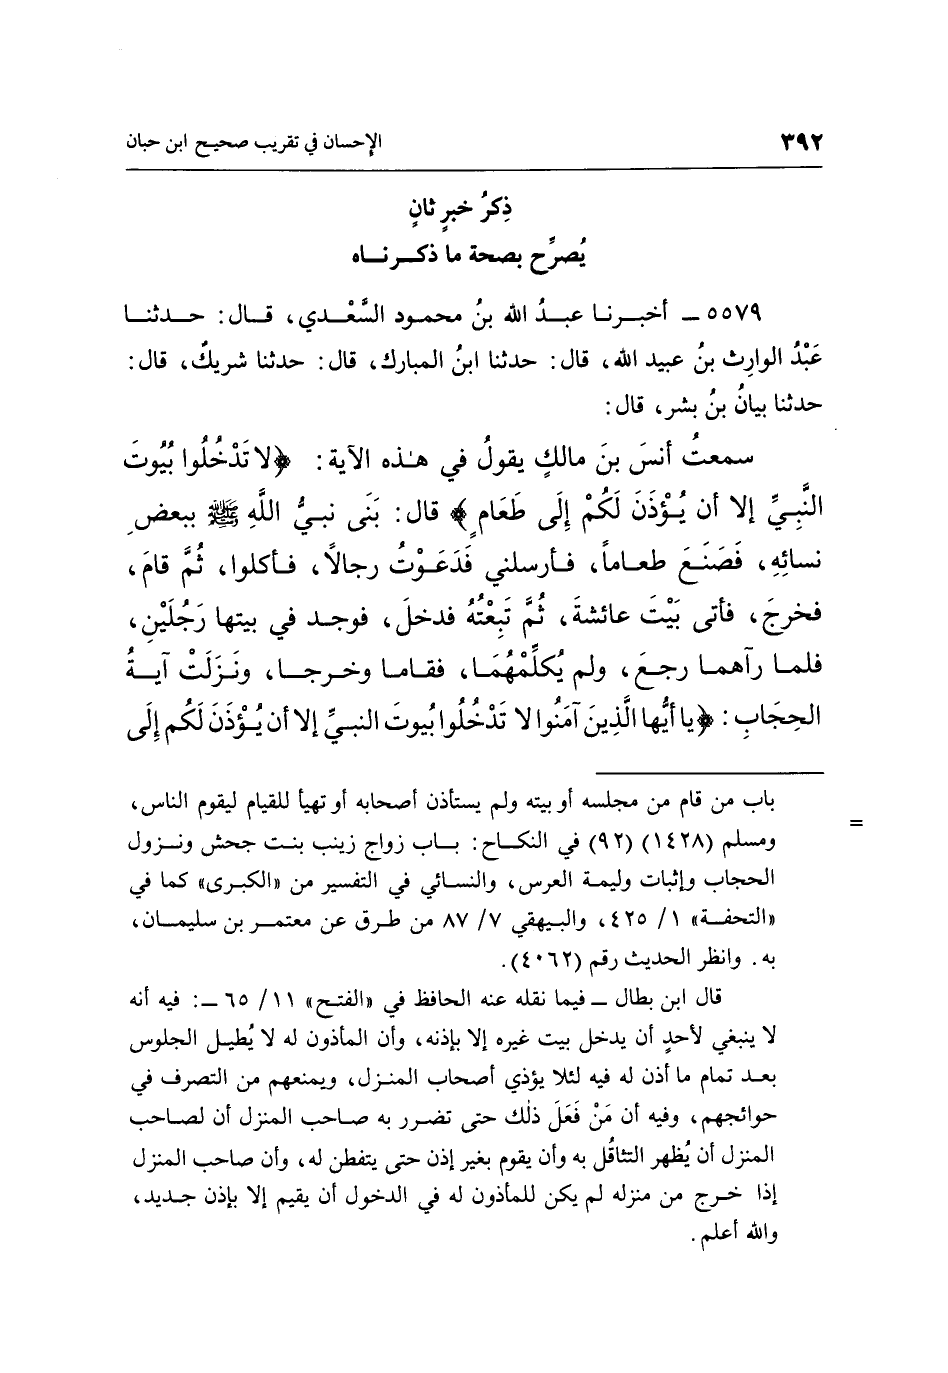 ٣٩٢ الإحسان في تقريب صحيح ابن حبان
ذِكرُ خبرٍ ثانٍ
يُصرِّح بصحة ما ذكرناه
٥٥٧٩ ـ أخبرنا عبدُ الله بنُ محمود السَّعْدي، قال: حدثنا
عَبْدُ الوارِث بنُ عبيد الله، قال: حدثنا ابنُ المبارك، قال: حدثنا شريكٌ، قال:
حدثنا بيانُ بنُ بشر، قال:
سمعتُ أنسَ بنَ مالكٍ يقولُ في هٰذه الآية: ﴿لا تَدْخُلُوا بُيُوتَ
النَّبِيِّ إلا أن يُؤْذَنَ لَكُمْ إِلَى طَعَامٍ﴾ قال: بَنَى نبيُّ اللَّهِ ﷺ ببعضِ
نسائِهِ، فَصَنَعَ طعاماً، فأرسلني فَدَعَوْتُ رجالاً، فأكلوا، ثُمَّ قامَ،
فخرجَ، فأتى بَيْتَ عائشةَ، ثُمَّ تَبِعْتُهُ فدخلَ، فوجد في بيتها رَجُلَيْنِ،
فلما رآهما رجعَ، ولم يُكلِّمْهُمَا، فقاما وخرجا، ونَزَلَتْ آيةُ
الحِجَابِ: ﴿يا أيُّها الَّذِينَ آمَنُوا لا تَدْخُلُوا بُيوتَ النبيِّ إلا أن يُؤْذَنَ لَكُم إِلَى
باب من قام من مجلسه أو بيته ولم يستأذن أصحابه أو تهيأ للقيام ليقوم الناس،
=
ومسلم (١٤٢٨) (٩٢) في النكاح: باب زواج زينب بنت جحش ونزول
الحجاب وإثبات وليمة العرس، والنسائي في التفسير من «الكبرى» كما في
«التحفة» ١/ ٤٢٥، والبيهقي ٧/ ٨٧ من طرق عن معتمر بن سليمان،
به. وانظر الحديث رقم (٤٠٦٢).
قال ابن بطال ـ فيما نقله عنه الحافظ في «الفتح» ١١/ ٦٥ ـ: فيه أنه
لا ينبغي لأحدٍ أن يدخل بيت غيره إلا بإذنه، وأن المأذون له لا يُطيل الجلوس
بعد تمام ما أذن له فيه لئلا يؤذي أصحاب المنزل، ويمنعهم من التصرف في
حوائجهم، وفيه أن مَنْ فَعَلَ ذٰلك حتى تضرر به صاحب المنزل أن لصاحب
المنزل أن يُظهر التثاقُل به وأن يقوم بغير إذن حتى يتفطن له، وأن صاحب المنزل
إذا خرج من منزله لم يكن للمأذون له في الدخول أن يقيم إلا بإذن جديد،
والله أعلم.